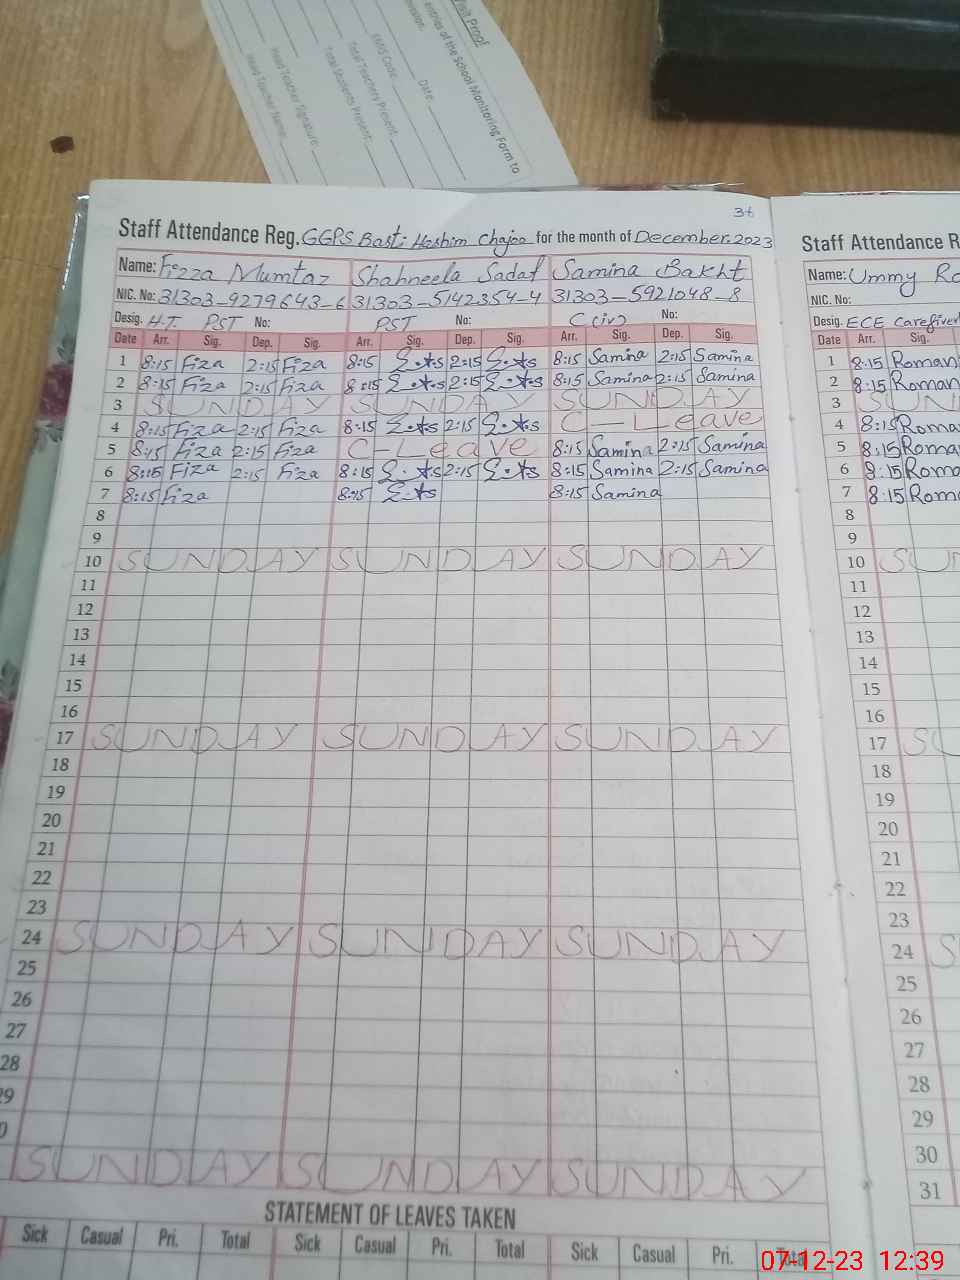 Visit Proof
entries of the School Monitoring Form to
Date:
EMIS Code:
Total Teachers Present:
Total Students Present:
Head Teacher Signature:
Head Teacher Name:
36
Staff Attendance Reg. GGPS Basti Hashim Chajoo for the month of December.2023
Name: Fizza Mumtaz Shahneela Sadaf Samina Bakht
NIC. No: 31303-9279643-6 31303-5142354-4 31303-5921048-8
Desig. H.T. PST No: PST No: C(iv) No:
Date Arr. Sig. Dep. Sig. Arr. Sig. Dep. Sig. Arr. Sig. Dep. Sig.
1 8:15 Fiza 2:15 Fiza 8:15 2:15 8:15 Samina 2:15 Samina
2 8:15 Fiza 2:15 Fiza 8:15 2:15 8:15 Samina 2:15 Samina
3 SUNDAY SUNDAY SUNDAY
4 8:15 Fiza 2:15 Fiza 8:15 2:15 C-Leave
5 8:15 Fiza 2:15 Fiza C-Leave 8:15 Samina 2:15 Samina
6 8:15 Fiza 2:15 Fiza 8:15 2:15 8:15 Samina 2:15 Samina
7 8:15 Fiza 8:15 8:15 Samina
8
9
10 SUNDAY SUNDAY SUNDAY
11
12
13
14
15
16
17 SUNDAY SUNDAY SUNDAY
18
19
20
21
22
23
24 SUNDAY SUNDAY SUNDAY
25
26
27
28
29
0
SUNDAY SUNDAY SUNDAY
STATEMENT OF LEAVES TAKEN
Sick Casual Pri. Total Sick Casual Pri. Total Sick Casual Pri. Total
Staff Attendance R
Name: Ummy Ro
NIC. No:
Desig. ECE Caregiver
Date Arr. Sig.
1 8:15 Roman
2 8:15 Roman
3 SUN
4 8:15 Roma
5 8:15 Roma
6 8:15 Roma
7 8:15 Rom
8
9
10 SU
11
12
13
14
15
16
17 SU
18
19
20
21
22
23
24 S
25
26
27
28
29
30
31
07-12-23 12:39